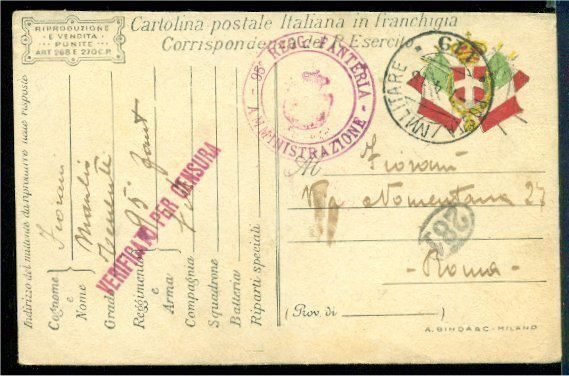 RIPRODUZIONE
E VENDITA
PUNITE
ART 268 E 270 C.P.
Cartolina postale Italiana in franchigia
Corrispondenza del R. Esercito
95º REGG. FANTERIA
AMMINISTRAZIONE
MILITARE
VERIFICATO PER CENSURA
Indirizzo del mittente da riprodurre nelle risposte
Cognome e Nome Fiorani Manlio
Grado Tenente
Reggimento e Arma 95º Fant
Compagnia
Squadrone
Batteria
Riparti speciali
Al
Fiorani
Via Nomentana 27
Roma
(Prov. di )
A. BINDA & C. - MILANO